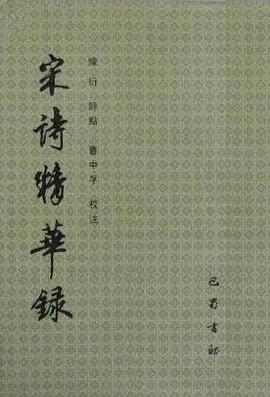 宋詩精華錄
陳衍 評點 曹中孚 校注
巴蜀書社